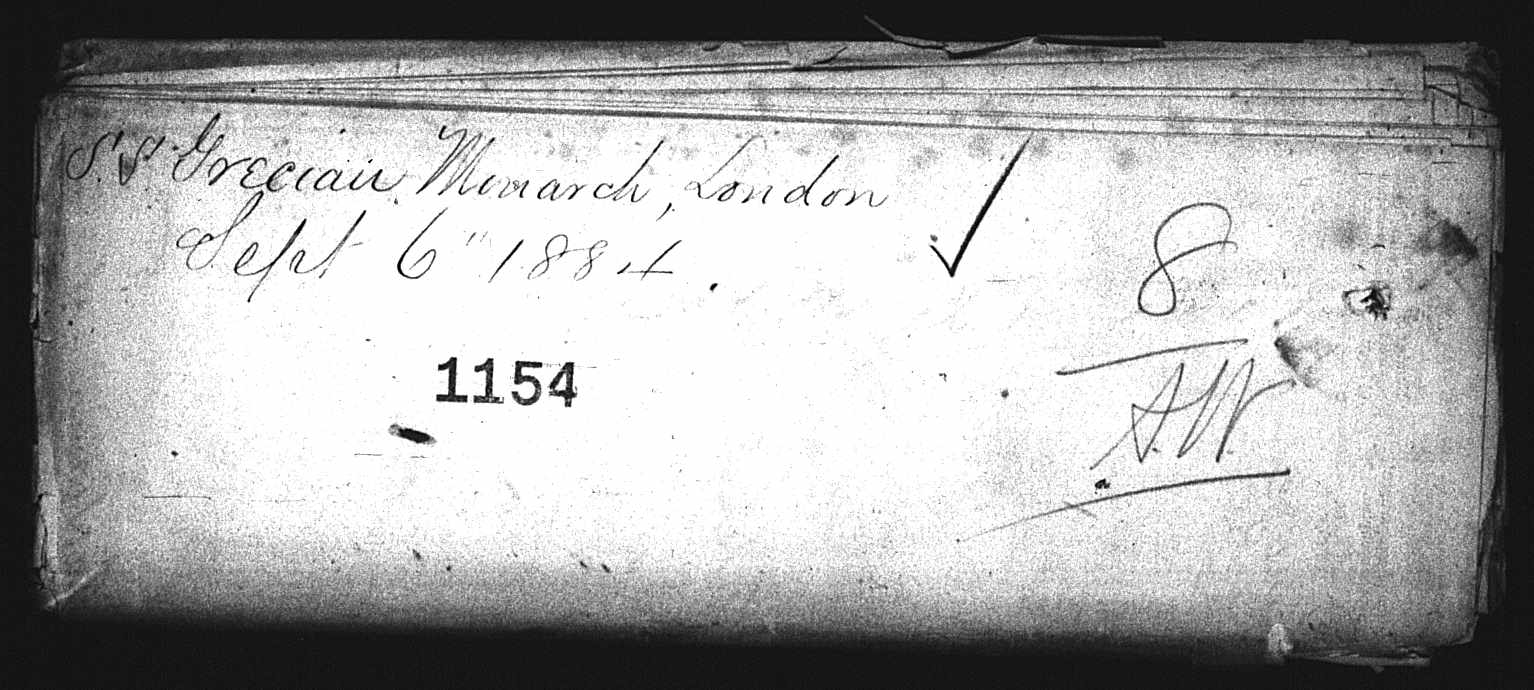 S.S. Grecian Monarch, London ✓
Sept 6" 1884.
8
A.W.
1154